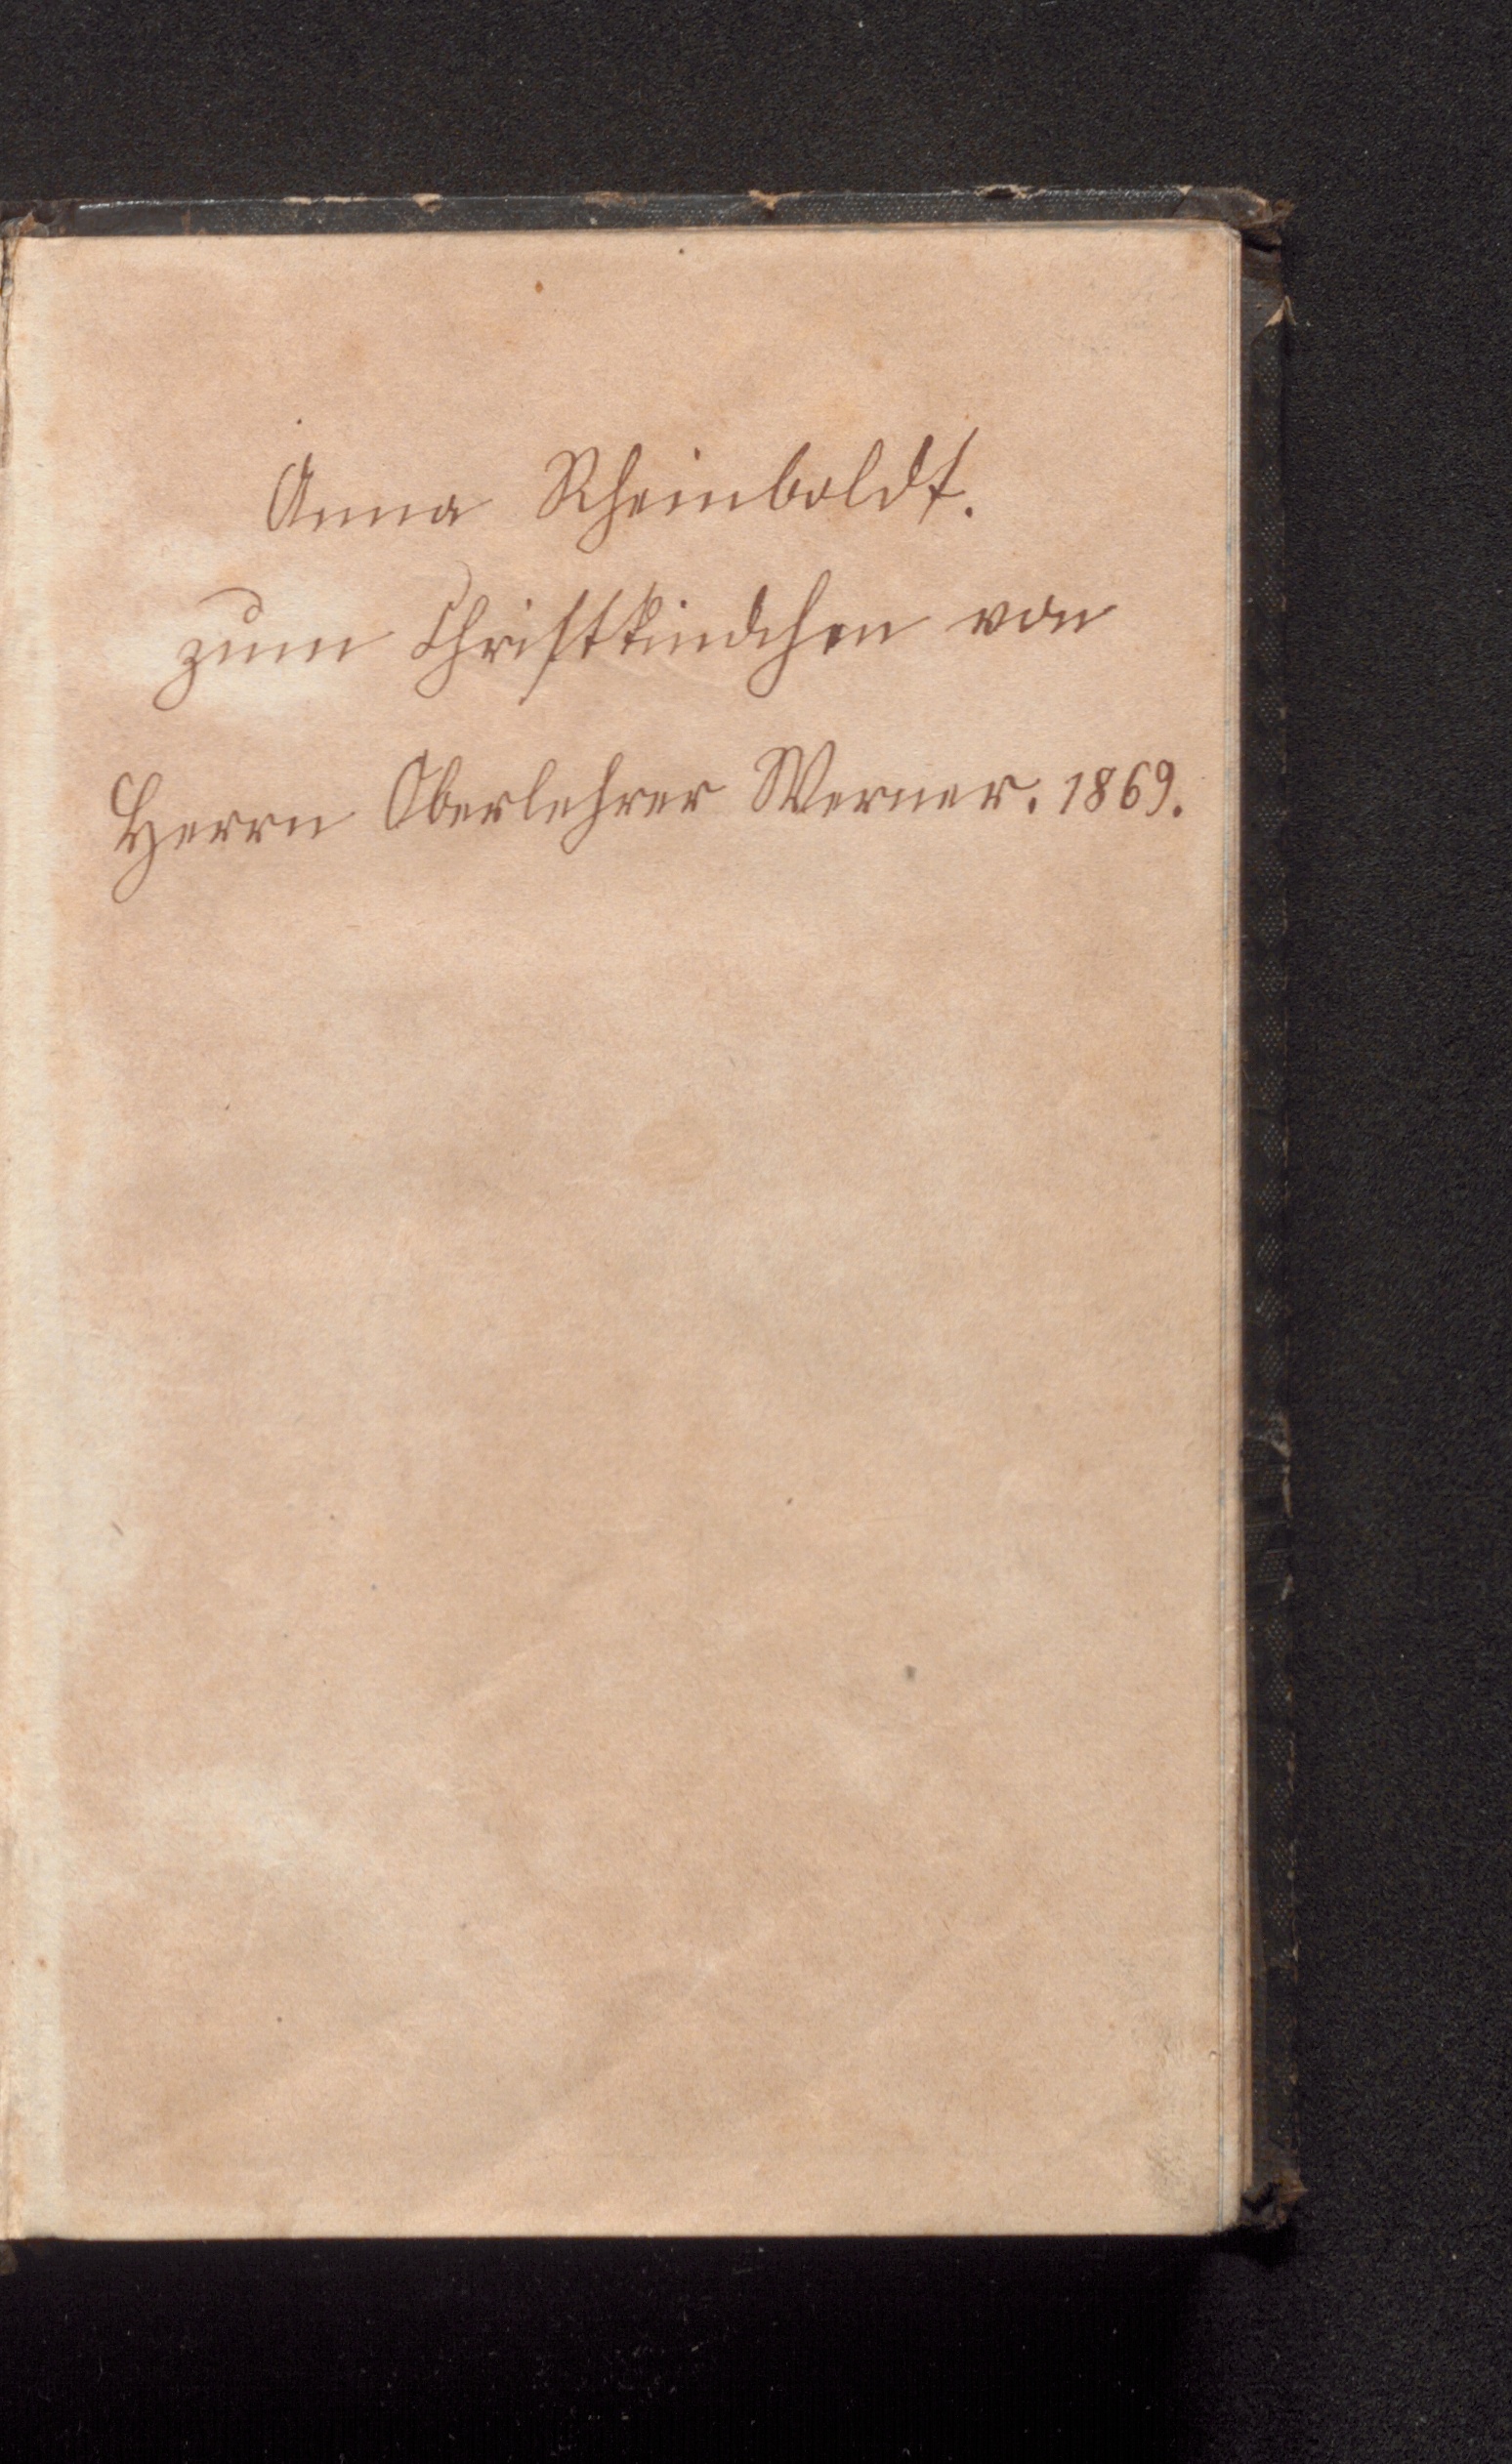 Anna Rheinboldt.
zum Christkindchen von
Herrn Oberlehrer Werner. 1869.